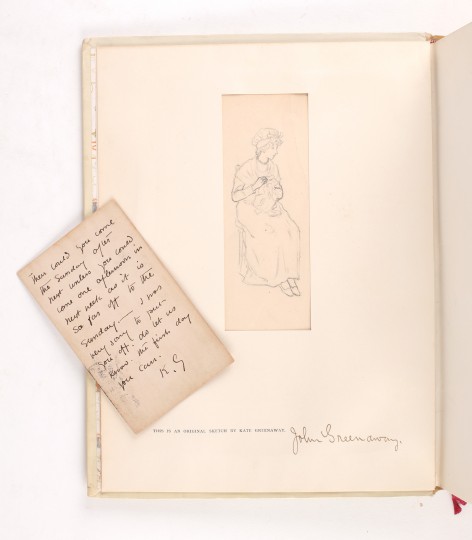 Then could you come
the Sunday after
next unless you could
come one afternoon in
next week as it is
so far off to the
Sunday— I was
very sorry to put
you off. do let us
know the first day
you can.
K. G
THIS IS AN ORIGINAL SKETCH BY KATE GREENAWAY.
John Greenaway.